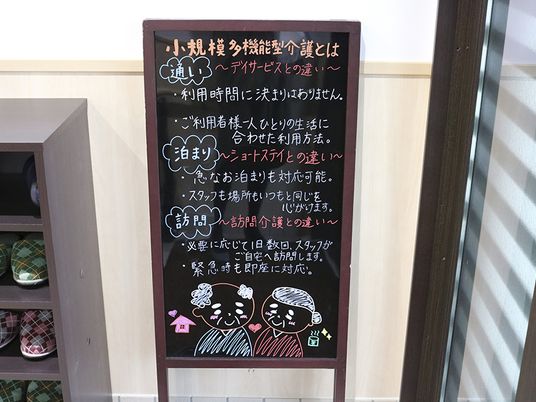 小規模多機能型介護とは
通い
～デイサービスとの違い～
・利用時間に決まりはありません。
・ご利用者様一人ひとりの生活に
合わせた利用方法。
泊まり
～ショートステイとの違い～
・急なお泊まりも対応可能。
・スタッフも場所もいつもと同じを
心がけます。
訪問
～訪問介護との違い～
・必要に応じて1日数回、スタッフが
ご自宅へ訪問します。
・緊急時も即座に対応。